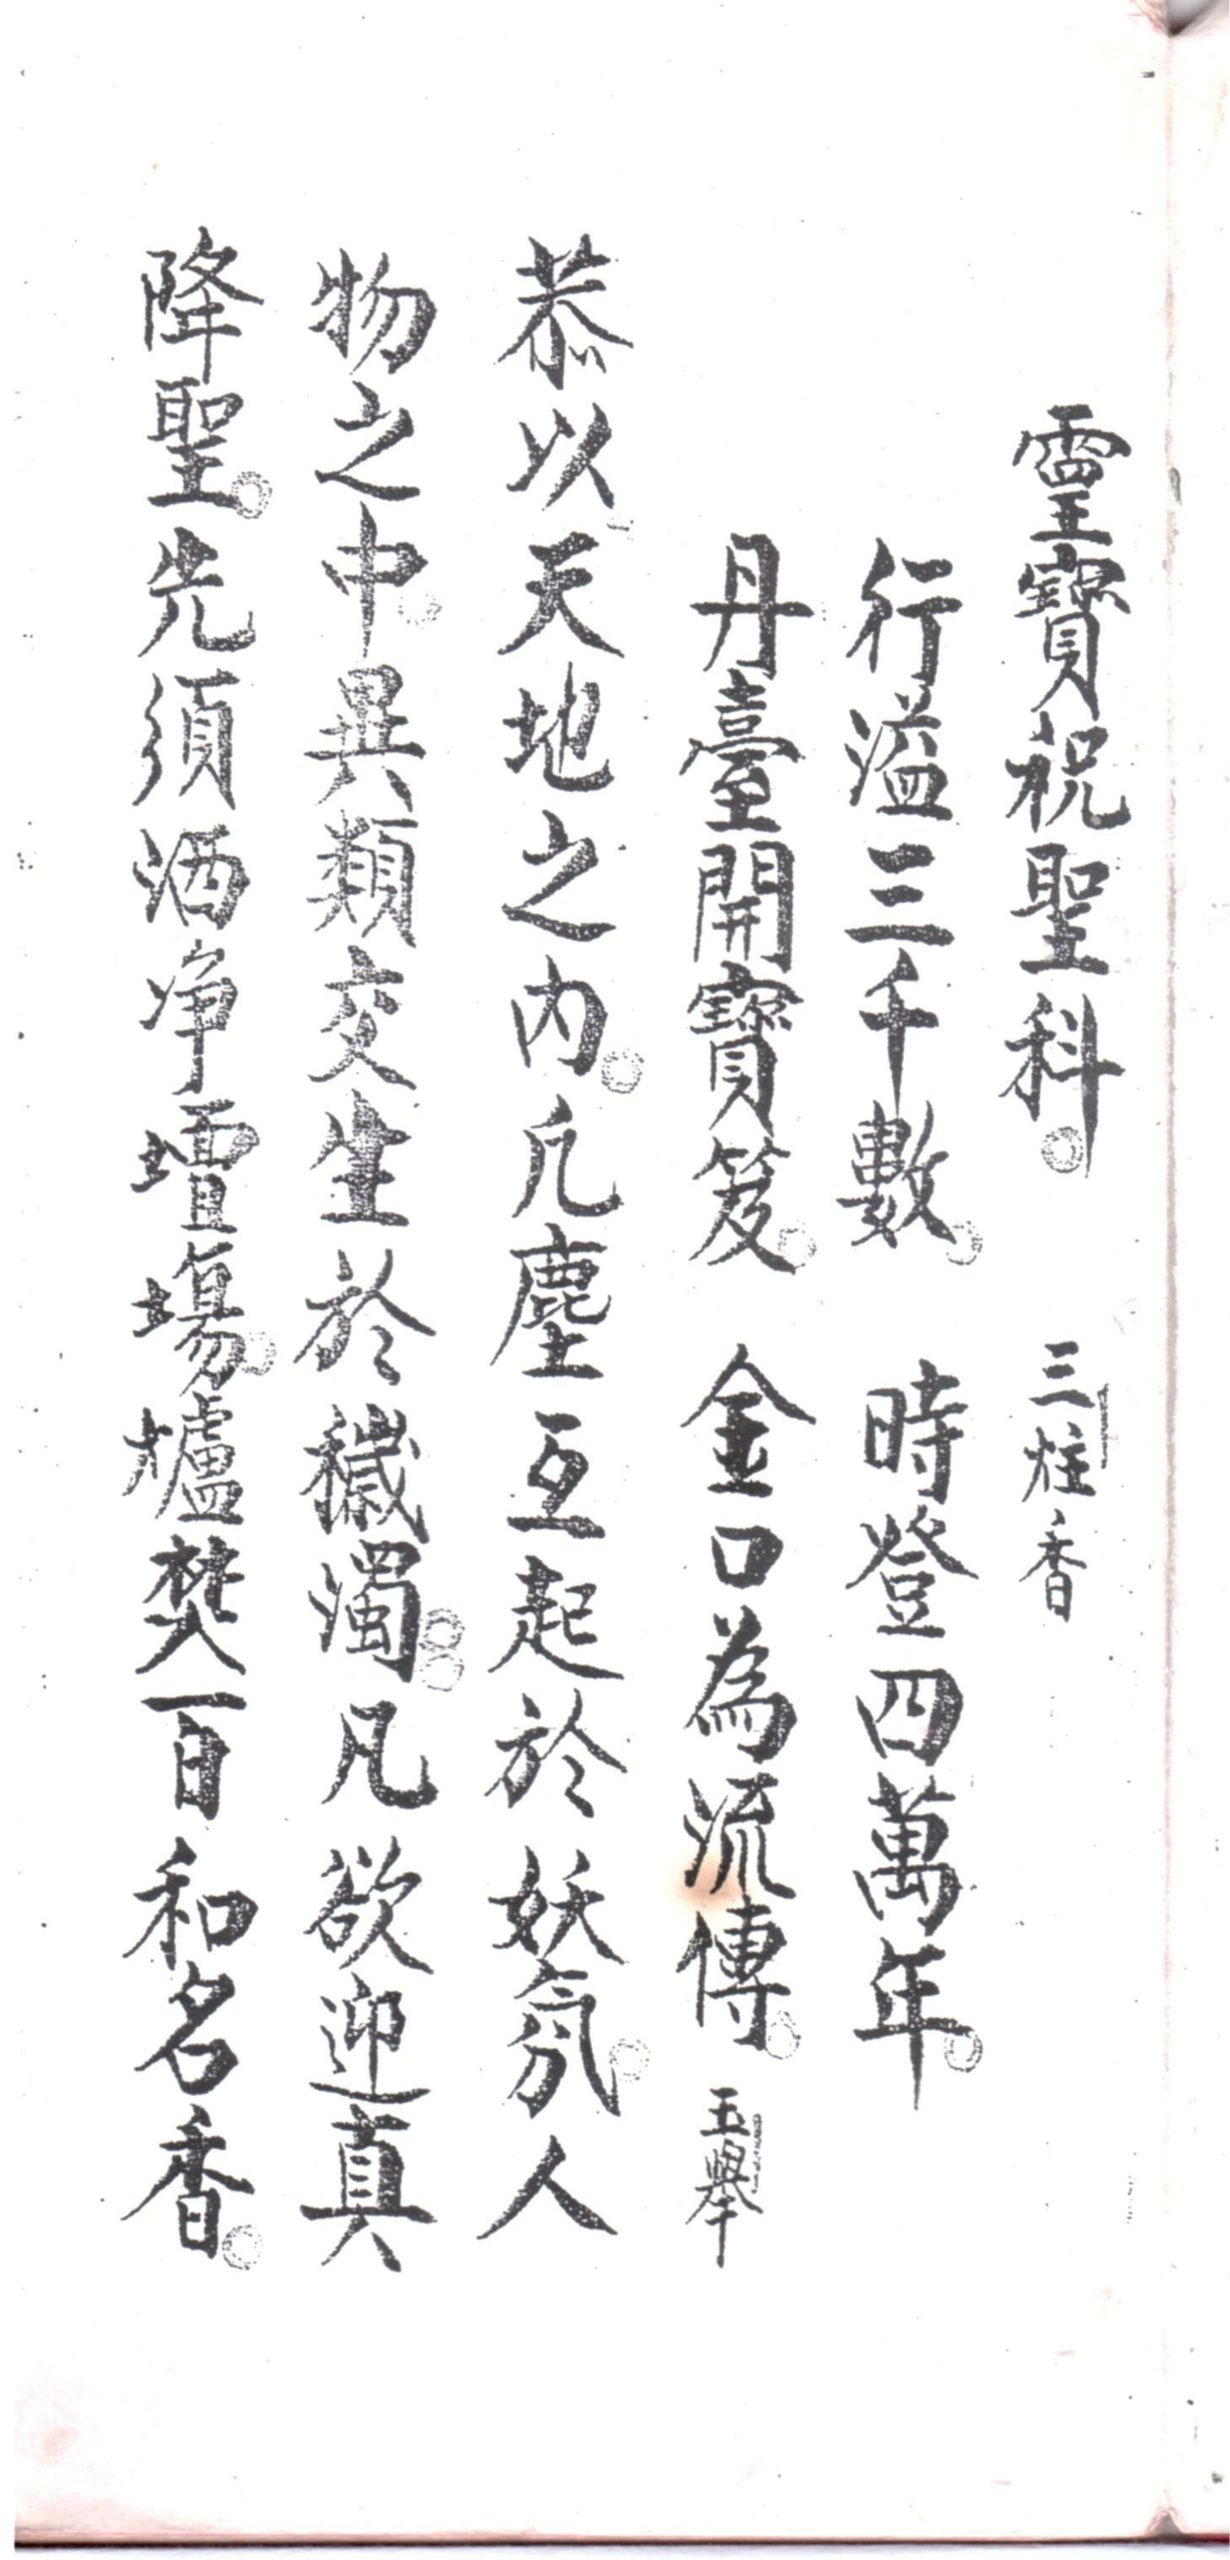 靈寶祝聖科。 三炷香
行溢三千數。 時登四萬年。
丹臺開寶笈。 金口為流傳。 玉舉
恭以天地之內。凢塵互起於妖氛。人
物之中。異類交生於穢濁。凡欲迎真
降聖。先須洒净壇場。爐焚百和名香。